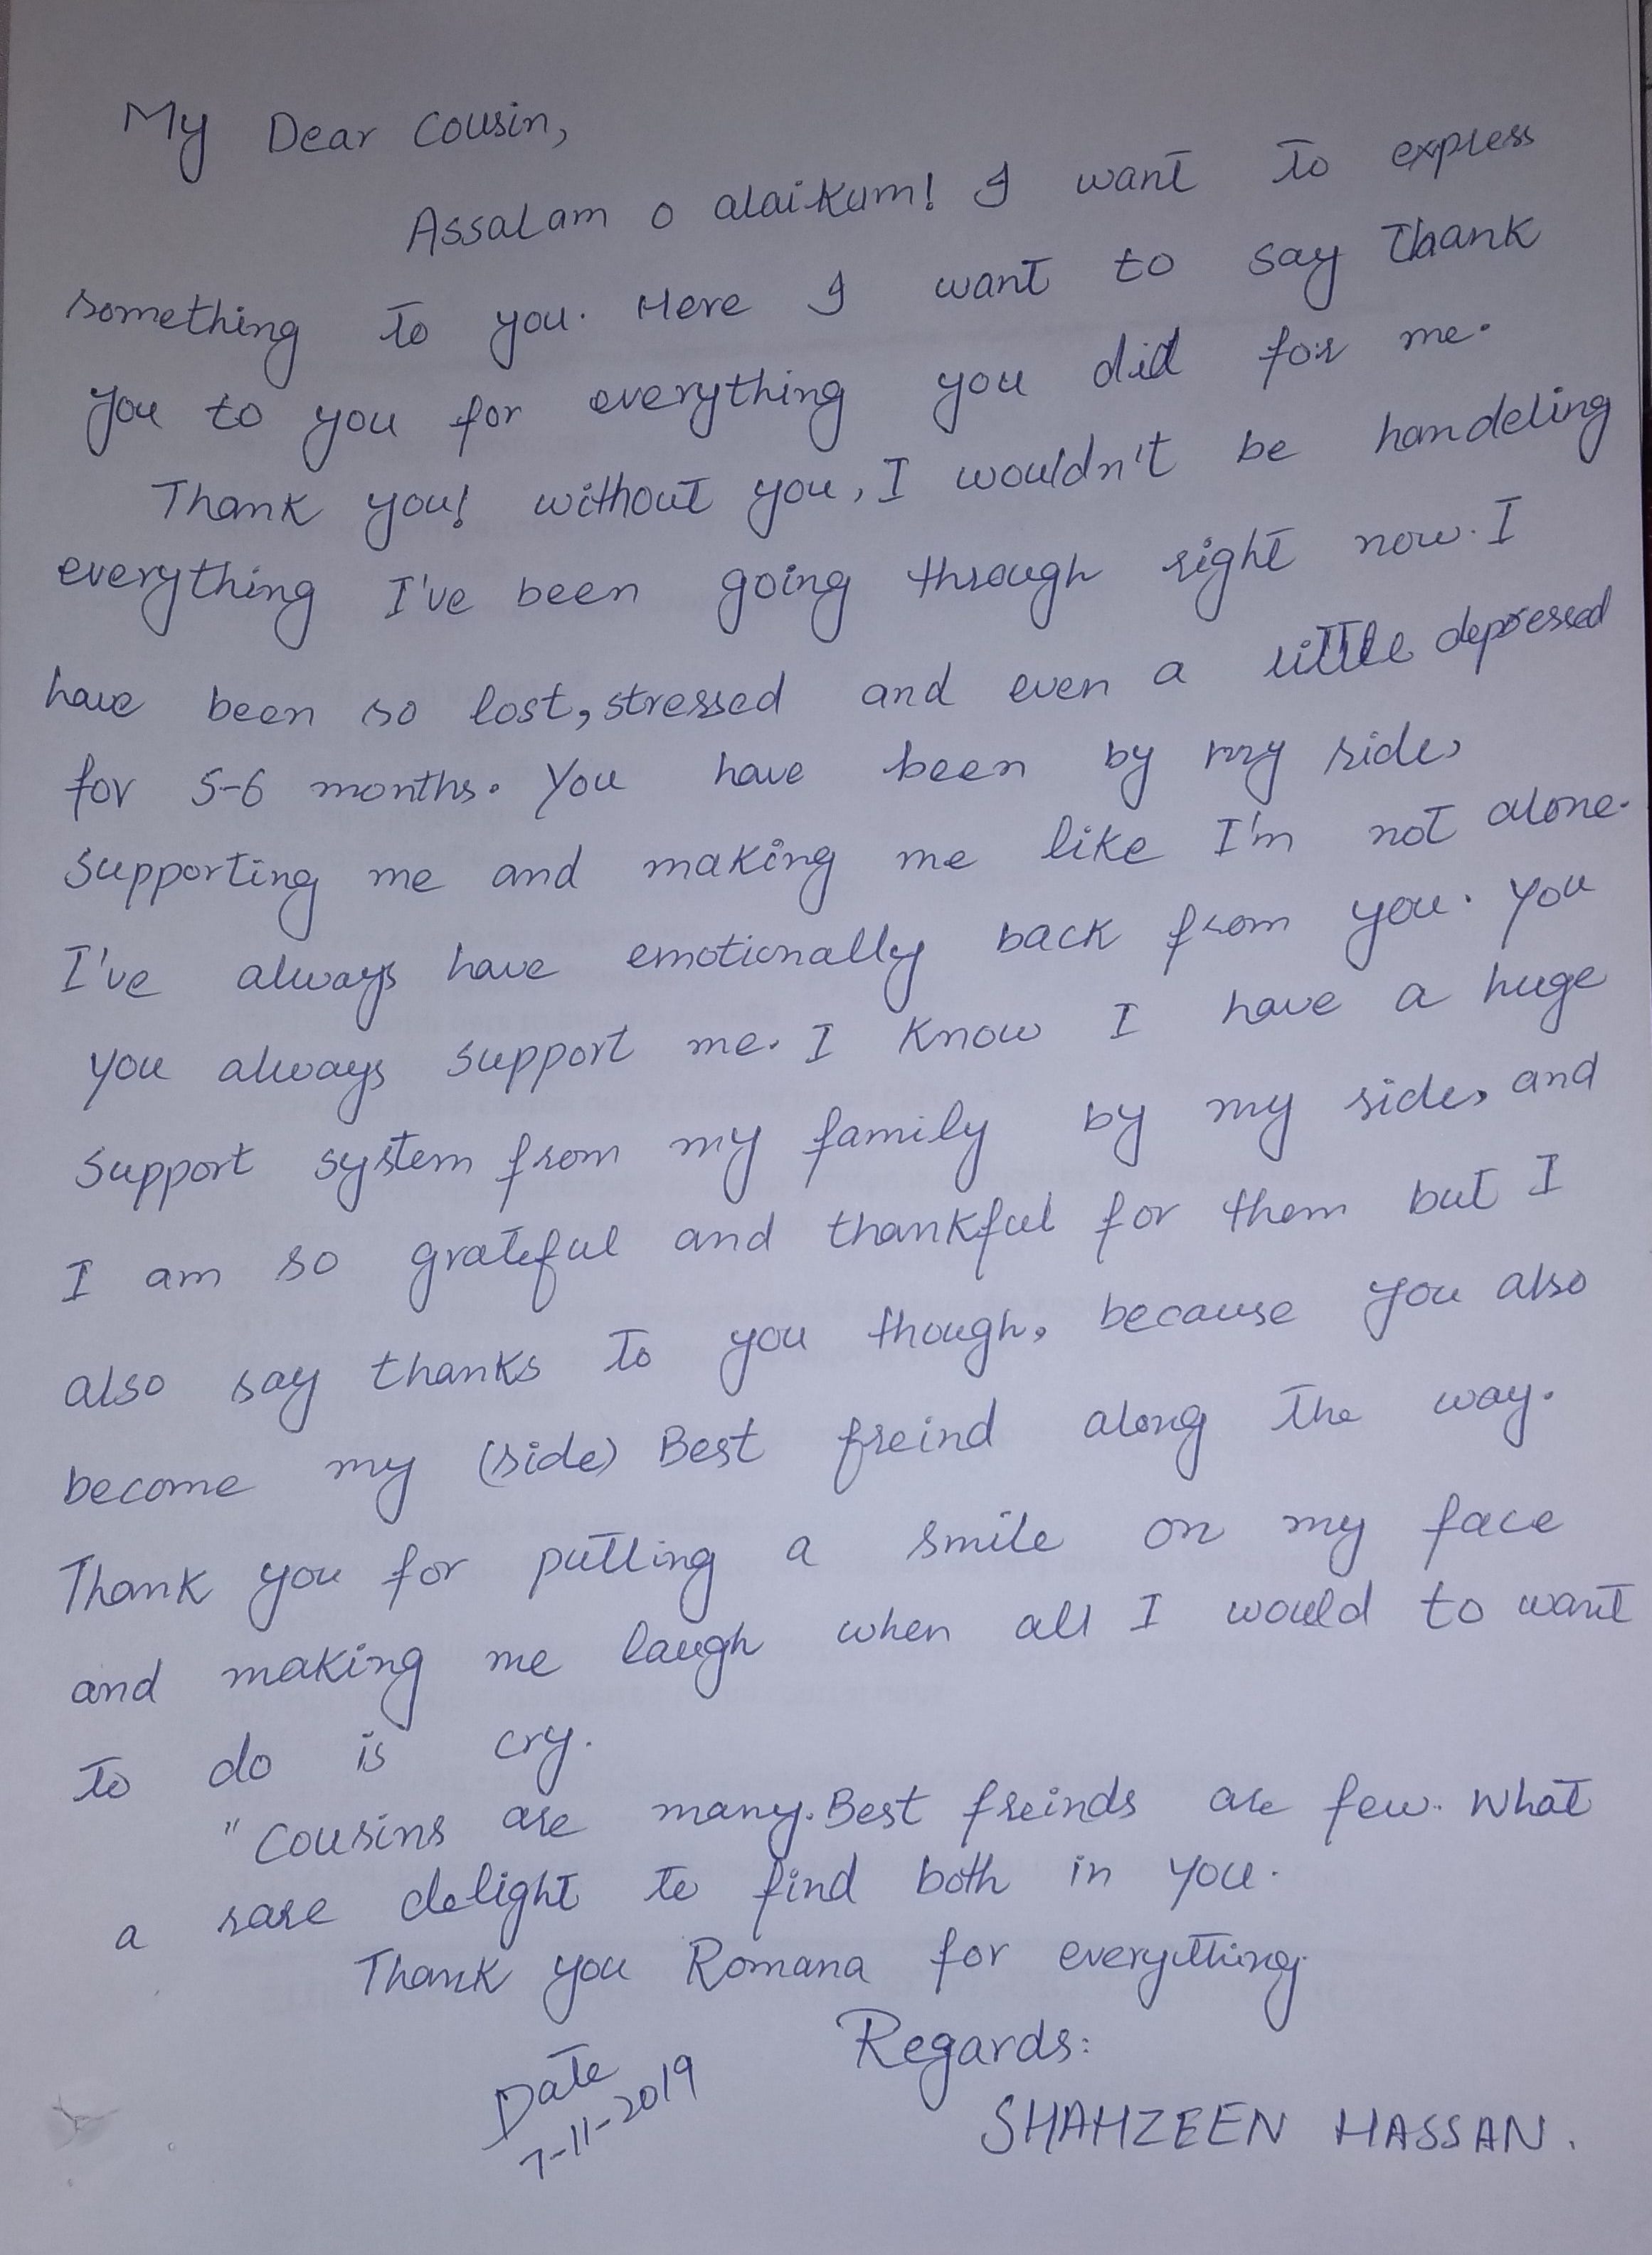 My Dear Cousin,
Assalam o alaikum! I want to express
something to you. Here I want to say Thank
you to you for everything you did for me.
Thank you! without you, I wouldn't be handeling
everything I've been going through right now. I
have been so lost, stressed and even a little depressed
for 5-6 months. You have been by my side,
supporting me and making me like I'm not alone.
I've always have emotionally back from you. You
you always support me. I know I have a huge
support system from my family by my side, and
I am so grateful and thankful for them but I
also say thanks to you though, because you also
become my (side) Best freind along the way.
Thank you for putting a smile on my face
and making me laugh when all I would to want
to do is cry.
"Cousins are many. Best freinds are few. What
a rare delight to find both in you.
Thank you Romana for everything
Regards:
Date
7-11-2019
SHAHZEEN HASSAN.